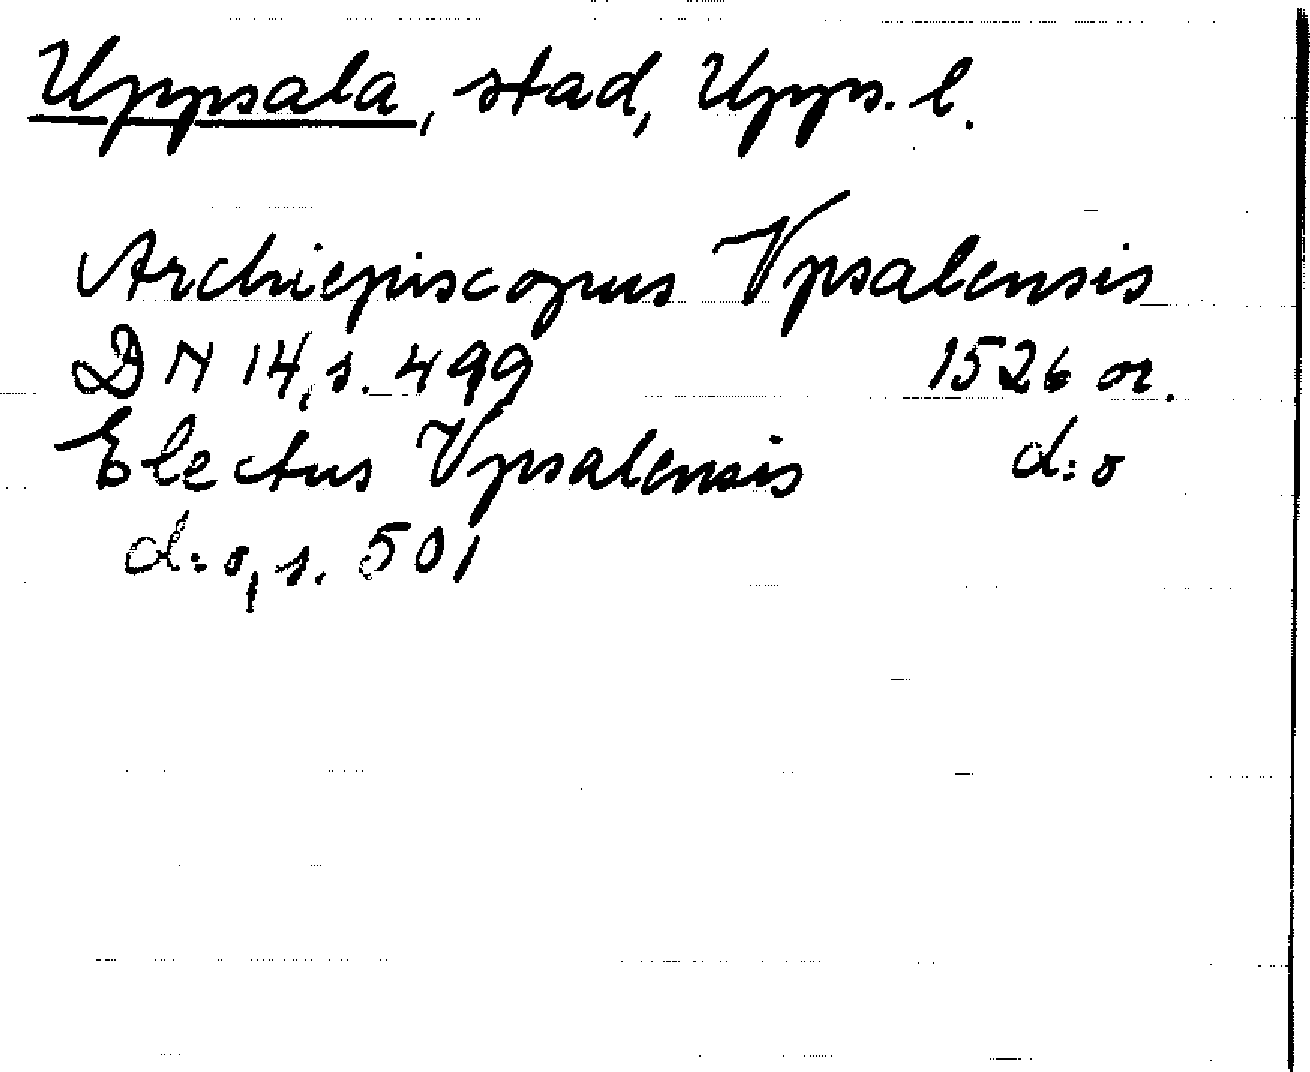 Uppsala, stad, Upps. l.
Archiepiscopus Vpsalensis
DN 14, s. 499 1526 or.
Electus Vpsalensis d:o
d:o, s. 501